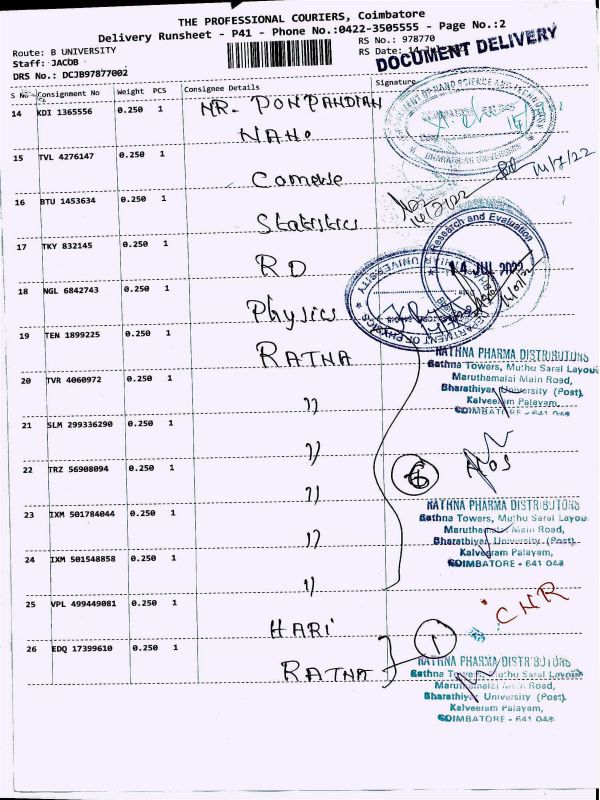 THE PROFESSIONAL COURIERS, Coimbatore
Delivery Runsheet - P41 - Phone No.:0422-3505555 - Page No.:2
Route: B UNIVERSITY
RS No.: 978770
Staff: JACOB
RS Date: 14
DRS No.: DCJB97877002
DOCUMENT DELIVERY
S No Consignment No Weight PCS Consignee Details Signature
14 KDI 1365556 0.250 1 MR. PONPANDIAN
NANO
15 TVL 4276147 0.250 1
Comerse
16 BTU 1453634 0.250 1
Statritics
14/7/22
Research and Evaluation
17 TKY 832145 0.250 1
RD
14 JUL 2022
18 NGL 6842743 0.250 1
Physics
DEPARTMENT OF PHYSICS
19 TEN 1899225 0.250 1
RATNA
RATHNA PHARMA DISTRIBUTORS
Rathna Towers, Muthu Saral Layout
Maruthamalai Main Road,
Bharathiyar University (Post),
Kalveeram Palayam,
COIMBATORE - 641 046
20 TVR 4060972 0.250 1
"
21 SLM 299336290 0.250 1
"
22 TRZ 56908094 0.250 1
"
6 NOS
23 IXM 501784044 0.250 1
"
RATHNA PHARMA DISTRIBUTORS
Rathna Towers, Muthu Saral Layou
Maruthamalai Main Road,
Bharathiyar University (Post),
Kalveeram Palayam,
COIMBATORE - 641 046
24 IXM 501548858 0.250 1
"
25 VPL 499449081 0.250 1
HARI
CNR
26 EDQ 17399610 0.250 1
RATNA
1
RATHNA PHARMA DISTRIBUTORS
Rathna Towers, Muthu Saral Layout
Maruthamalai Main Road,
Bharathiyar University (Post),
Kalveeram Palayam,
COIMBATORE - 641 046